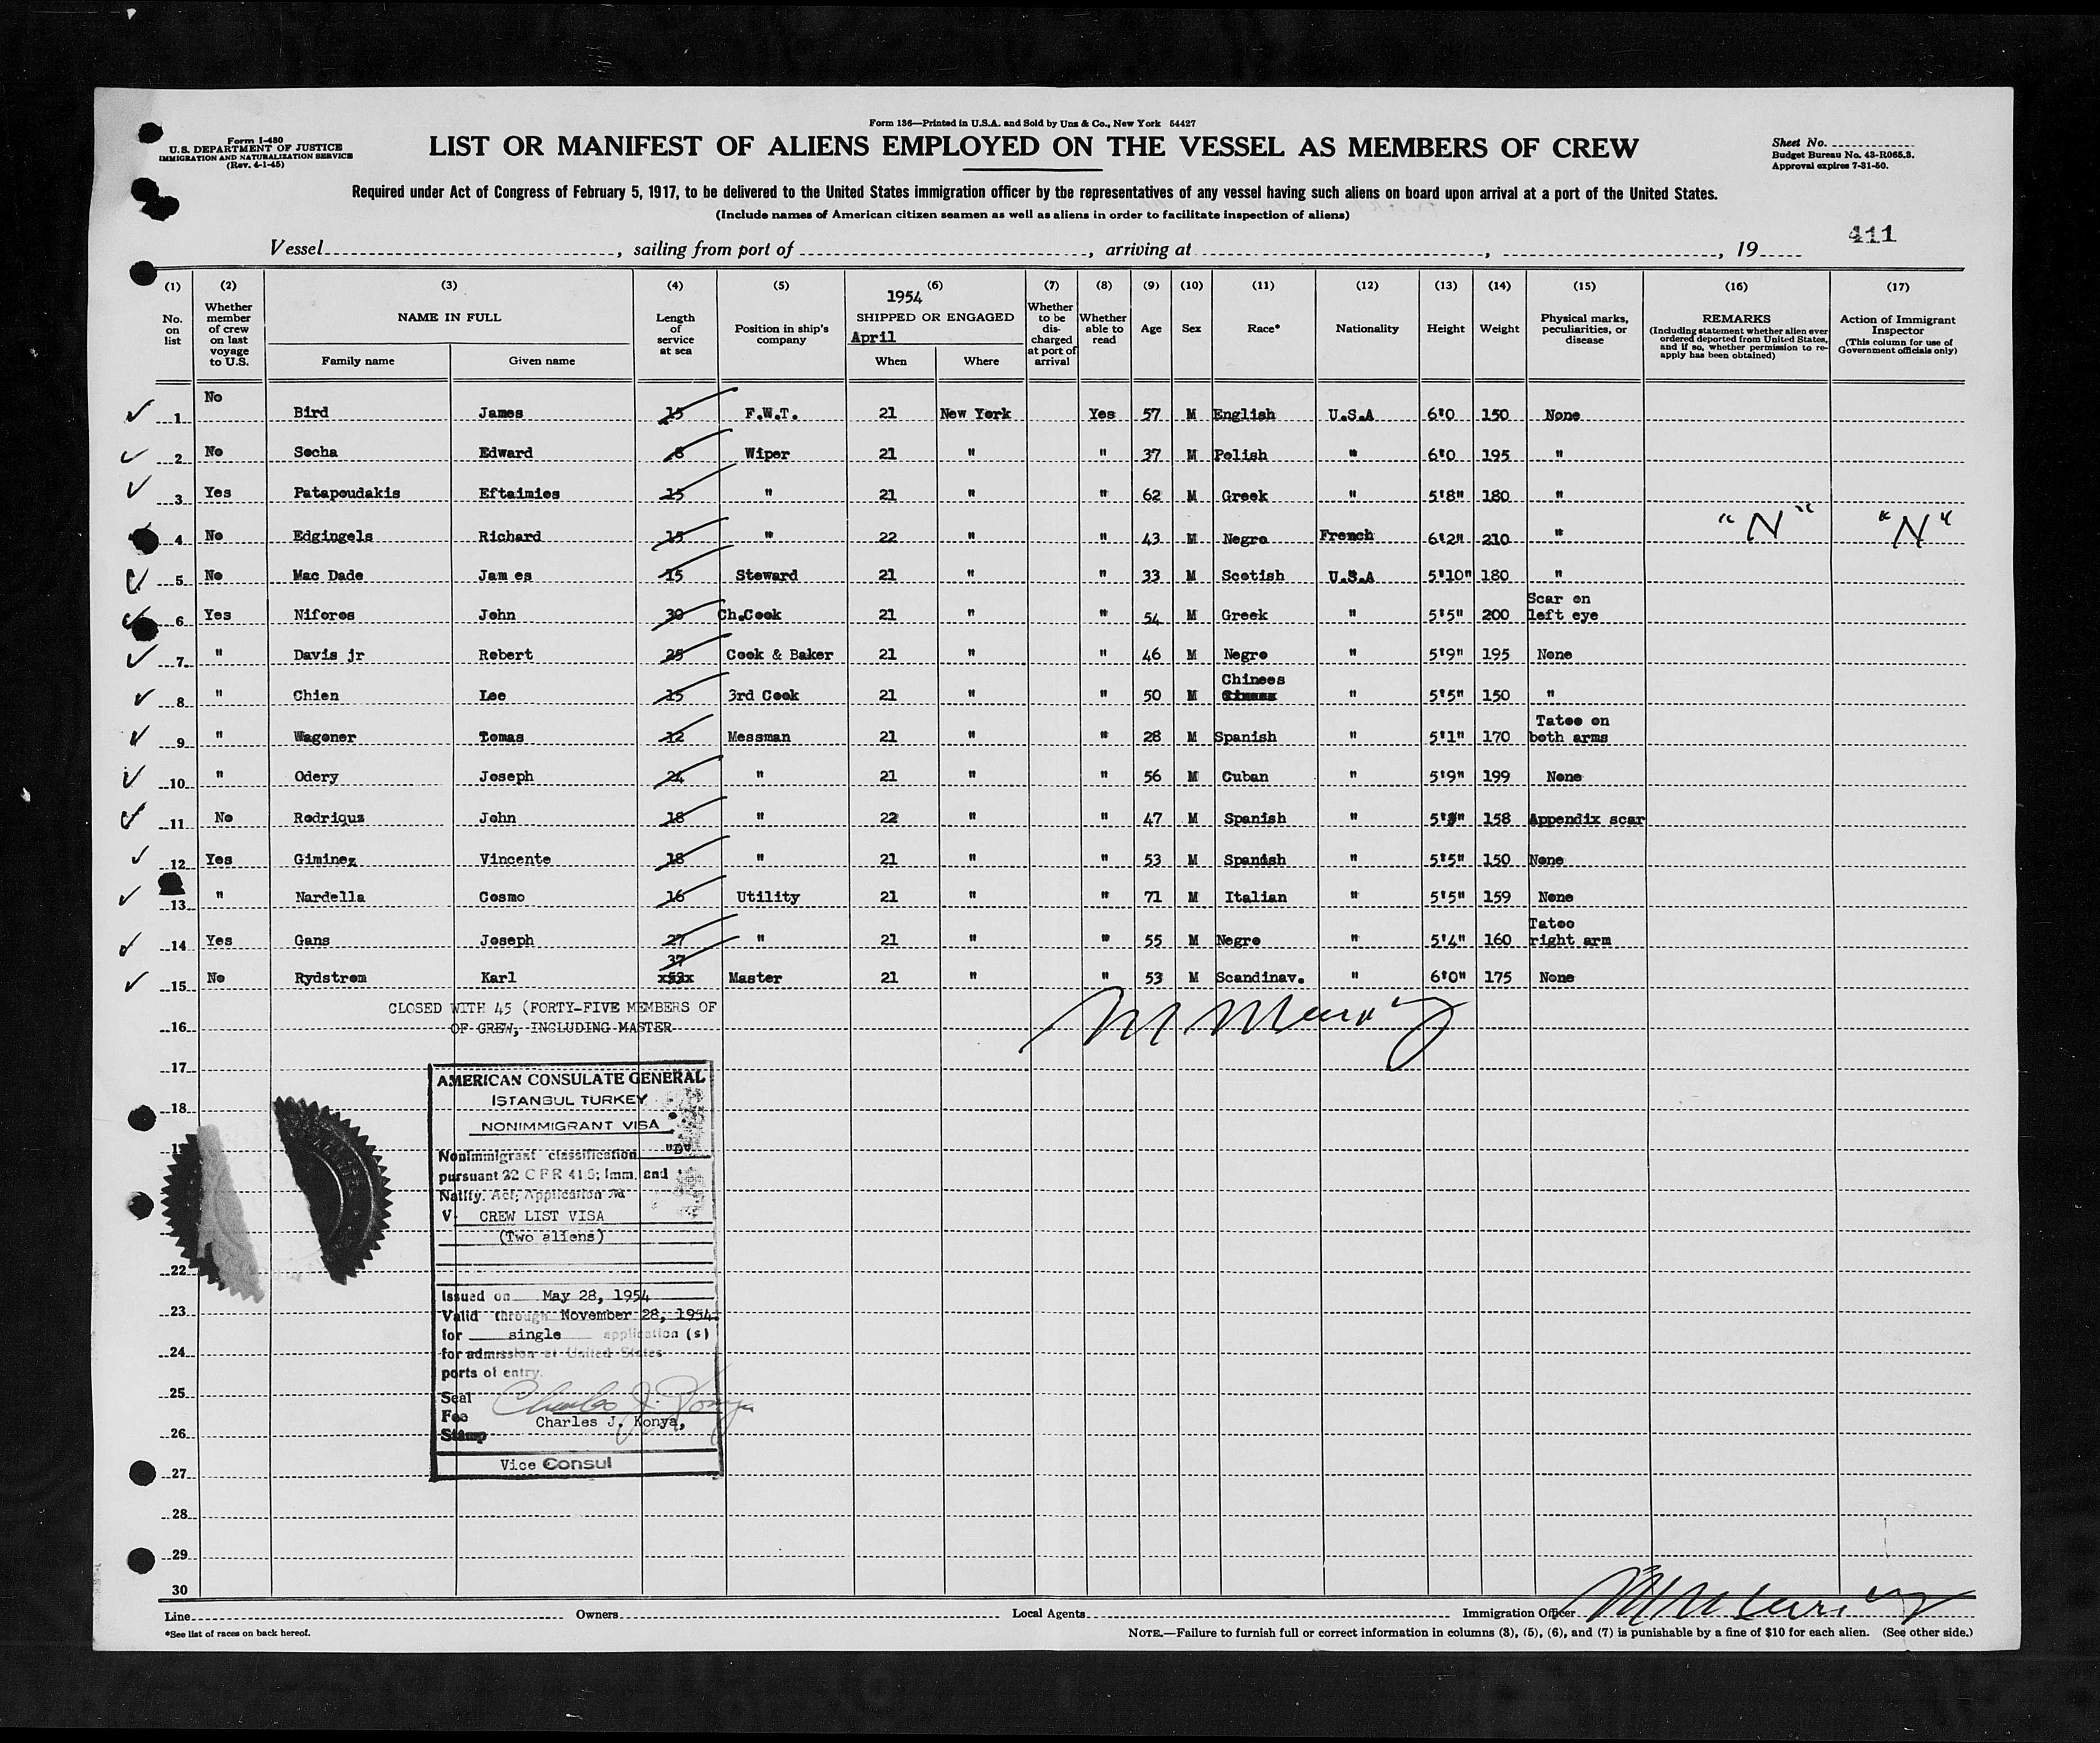 Form 136—Printed in U.S.A. and Sold by Unz & Co., New York 54427
Form I-480
U.S. DEPARTMENT OF JUSTICE
IMMIGRATION AND NATURALIZATION SERVICE
(Rev. 4-1-45)
LIST OR MANIFEST OF ALIENS EMPLOYED ON THE VESSEL AS MEMBERS OF CREW
Sheet No.
Budget Bureau No. 43-R065.3.
Approval expires 7-31-50.
Required under Act of Congress of February 5, 1917, to be delivered to the United States immigration officer by the representatives of any vessel having such aliens on board upon arrival at a port of the United States.
(Include names of American citizen seamen as well as aliens in order to facilitate inspection of aliens)
411
Vessel , sailing from port of , arriving at , , 19
(1) (2) (3) (4) (5) (6) (7) (8) (9) (10) (11) (12) (13) (14) (15) (16) (17)
No. on list
Whether member of crew on last voyage to U.S.
NAME IN FULL
Family name Given name
Length of service at sea
Position in ship's company
1954
SHIPPED OR ENGAGED
April
When Where
Whether to be discharged at port of arrival
Whether able to read
Age
Sex
Race*
Nationality
Height
Weight
Physical marks, peculiarities, or disease
REMARKS
(Including statement whether alien ever ordered deported from United States, and if so, whether permission to reapply has been obtained)
Action of Immigrant Inspector
(This column for use of Government officials only)
1 No Bird James 15 F.W.T. 21 New York Yes 57 M English U.S.A 6'0 150 None
2 No Socha Edward 6 Wiper 21 " " 37 M Polish " 6'0 195 "
3 Yes Patapoudakis Eftaimios 15 " 21 " " 62 M Greek " 5'8" 180 "
4 No Edgingels Richard 15 " 22 " " 43 M Negro French 6'2" 210 " "N" "N"
5 No Mac Dade Jam es 15 Steward 21 " " 33 M Scotish U.S.A 5'10" 180 "
6 Yes Niforos John 30 Ch.Cook 21 " " 54 M Greek " 5'5" 200 Scar on left eye
7 " Davis jr Robert 25 Cook & Baker 21 " " 46 M Negro " 5'9" 195 None
8 " Chien Lee 15 3rd Cook 21 " " 50 M Chinees " 5'5" 150 "
9 " Wagoner Tomas 12 Messman 21 " " 28 M Spanish " 5'1" 170 Tatoo on both arms
10 " Odery Joseph 24 " 21 " " 56 M Cuban " 5'9" 199 None
11 No Rodriquz John 18 " 22 " " 47 M Spanish " 158 Appendix scar
12 Yes Giminez Vincente 18 " 21 " " 53 M Spanish " 5'5" 150 None
13 " Nardella Cosmo 16 Utility 21 " " 71 M Italian " 5'5" 159 None
14 Yes Gans Joseph 27 " 21 " " 55 M Negro " 5'4" 160 Tatoo right arm
15 No Rydstrom Karl 37 Master 21 " " 53 M Scandinav. " 6'0" 175 None
CLOSED WITH 45 (FORTY-FIVE MEMBERS OF
16 OF CREW, INCLUDING MASTER
17
18
22
23
24
25
26
27
28
29
30
AMERICAN CONSULATE GENERAL
ISTANBUL TURKEY
NONIMMIGRANT VISA
Nonimmigrant classification "D"
pursuant 22 C F R 41.5; Imm. and
Natlty. Act; Application No
V- CREW LIST VISA
(Two aliens)
Issued on May 28, 1954
Valid through November 28, 1954
for single application (s)
for admission at United States
ports of entry.
Seal
Fee Charles J. Konya,
Stamp
Vice Consul
Line Owners Local Agents Immigration Officer
*See list of races on back hereof.
NOTE.—Failure to furnish full or correct information in columns (3), (5), (6), and (7) is punishable by a fine of $10 for each alien. (See other side.)